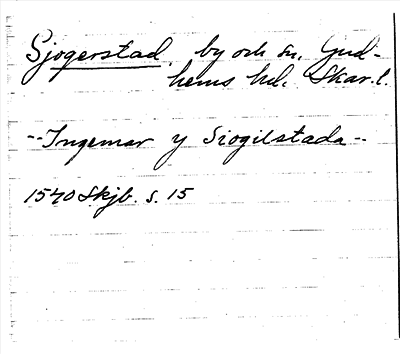 Sjogerstad, by och sn, Gud-
hems hd. Skar.l.
--Ingemar y Siogilstada--
1540 Skjb. s. 15